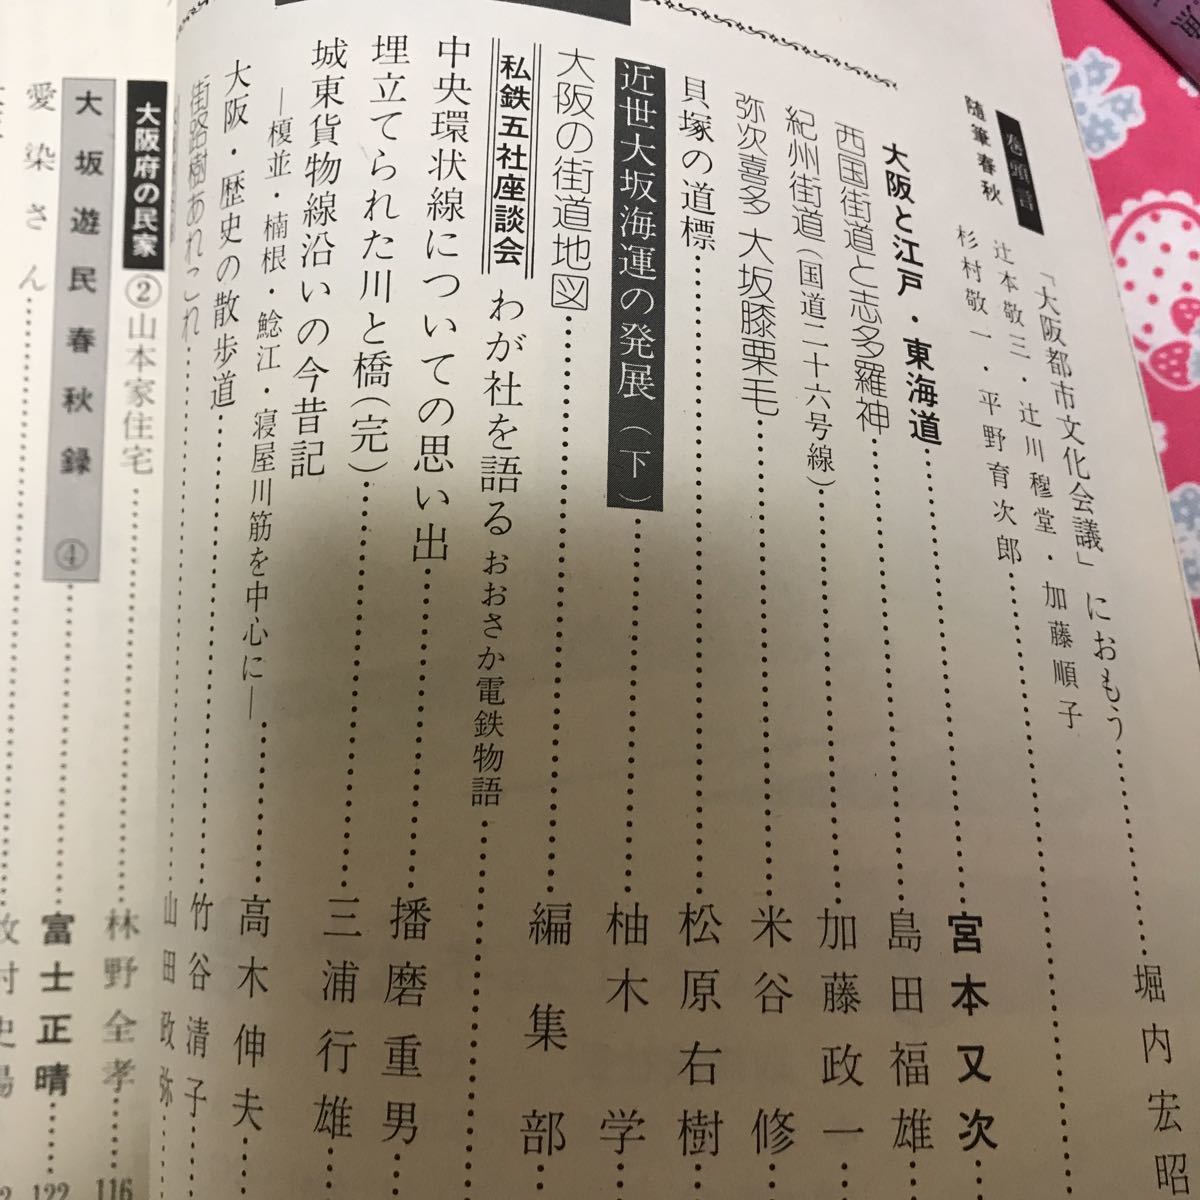 巻頭言
「大阪都市文化会議」におもう……堀内宏昭
随筆春秋
辻本敬三・辻川穆堂・加藤順子
杉村敬一・平野育次郎……
大阪と江戸・東海道……宮本又次
西国街道と志多羅神……島田福雄
紀州街道(国道二十六号線)……加藤政一
弥次喜多 大坂膝栗毛……米谷修
貝塚の道標……松原右樹
近世大坂海運の発展(下)……柚木学
大阪の街道地図……編集部
私鉄五社座談会 わが社を語る おおさか電鉄物語……
中央環状線についての思い出……播磨重男
埋立てられた川と橋(完)……三浦行雄
城東貨物線沿いの今昔記
―榎並・楠根・鯰江・寝屋川筋を中心に―……高木伸夫
大阪・歴史の散歩道……竹谷清子
街路樹あれこれ……山田政弥
大阪府の民家 ②山本家住宅……林野全孝……116
大坂遊民春秋録 ④……富士正晴……122
愛染さん……牧村史陽